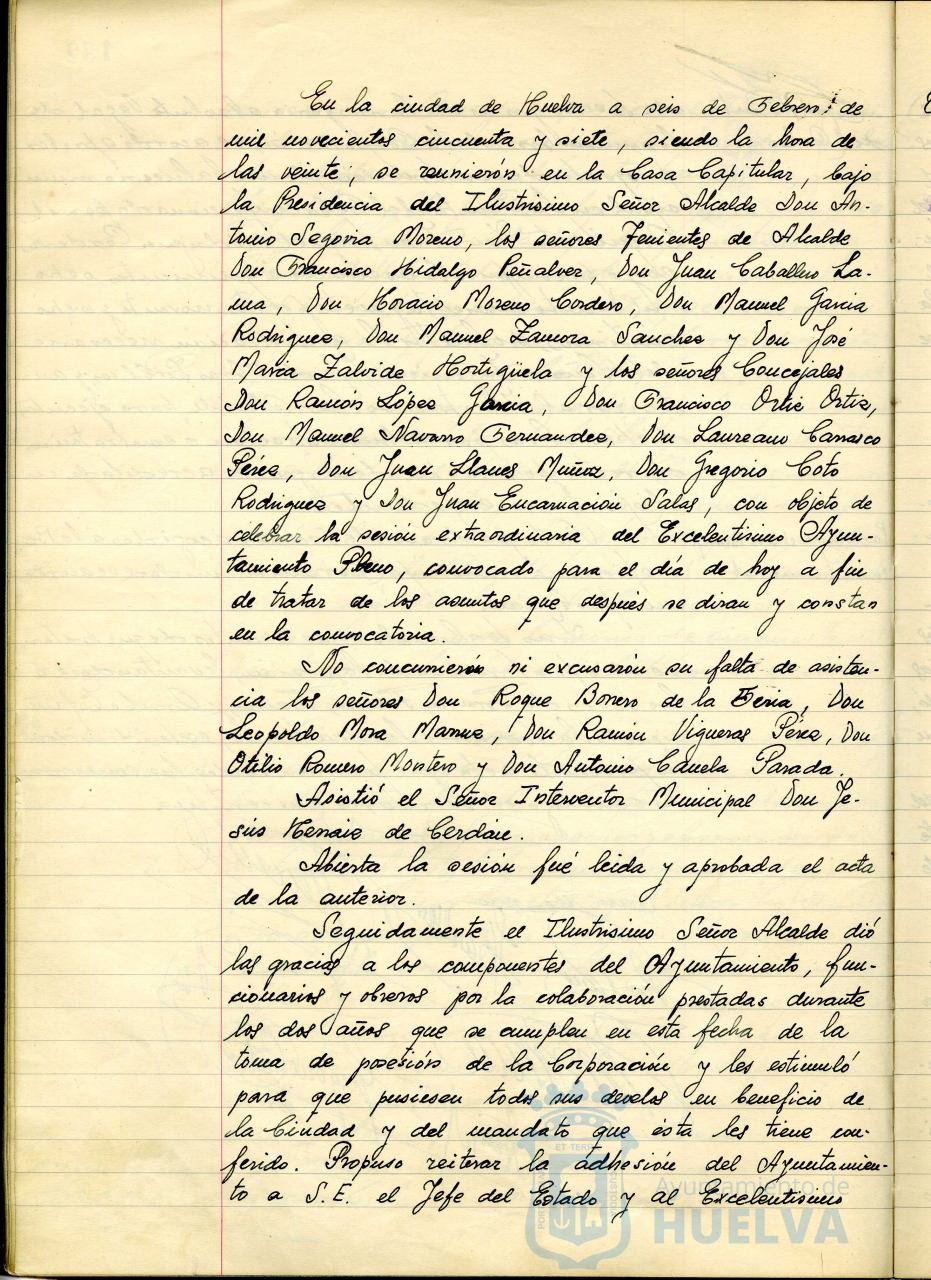 En la ciudad de Huelva a seis de Febrero de
mil novecientos cincuenta y siete, siendo la hora de
las veinte, se reunierón en la Casa Capitular, bajo
la Presidencia del Ilustrisimo Señor Alcalde Don An-
tonio Segovia Moreno, los señores Tenientes de Alcalde
Don Francisco Hidalgo Peñalver, Don Juan Caballero La-
ma, Don Horacio Moreno Cordero, Don Manuel Garcia
Rodriguez, Don Manuel Zamora Sanchez y Don José
Maria Zalvide Hortigüela y los señores Concejales
Don Ramón López Garcia, Don Francisco Ortiz Ortiz,
Don Manuel Navarro Fernandez, Don Laureano Carrasco
Pérez, Don Juan Llanes Muñoz, Don Gregorio Coto
Rodriguez y Don Juan Encarnación Salas, con objeto de
celebrar la sesión extraordinaria del Excelentisimo Ayun-
tamiento Pleno, convocado para el día de hoy a fin
de tratar de los asuntos que después se diran y constan
en la convocatoria.
No concurrierón ni excusarón su falta de asisten-
cia los señores Don Roque Borrero de la Feria, Don
Leopoldo Mora Don Ramón Vigueras Pérez, Don
Otilio Romero Montero y Don Antonio Canela Parada.
Asistió el Señor Interventor Municipal Don Je-
sús de Cerdán.
Abierta la sesión fué leida y aprobada el acta
de la anterior.
Seguidamente el Ilustrisimo Señor Alcalde dió
las gracias a los componentes del Ayuntamiento, fun-
cionarios y obreros por la colaboración prestadas durante
los dos años que se cumplen en esta fecha de la
toma de posesión de la Corporación y les estimuló
para que pusiesen todos sus desvelos en beneficio de
la Ciudad y del mandato que ésta les tiene con-
ferido. Propuso reiterar la adhesión del Ayuntamien-
to a S.E. el Jefe del Estado y al Excelentisimo
Ayuntamiento de
HUELVA